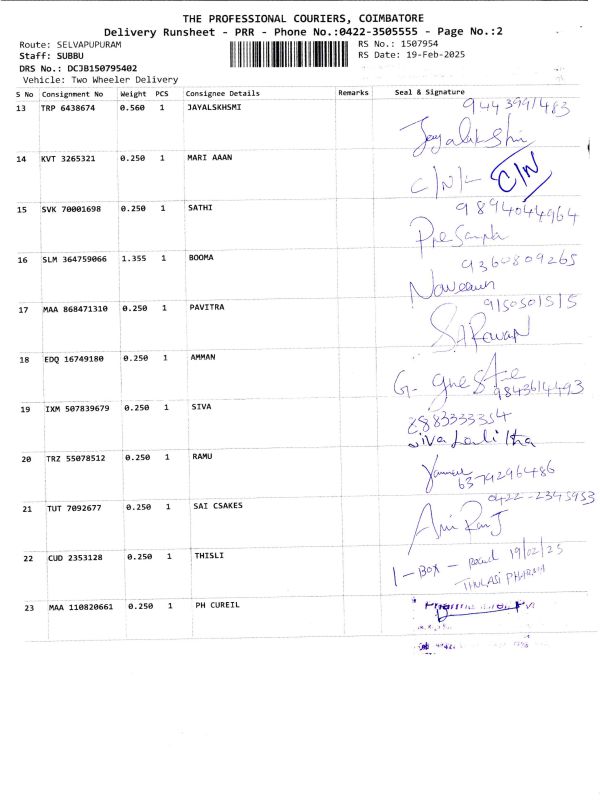 THE PROFESSIONAL COURIERS, COIMBATORE
Delivery Runsheet - PRR - Phone No.:0422-3505555 - Page No.:2
Route: SELVAPUPURAM
RS No.: 1507954
Staff: SUBBU
RS Date: 19-Feb-2025
DRS No.: DCJB150795402
Vehicle: Two Wheeler Delivery
S No Consignment No Weight PCS Consignee Details Remarks Seal & Signature
13 TRP 6438674 0.560 1 JAYALSKHSMI
9443991483
Jayalakshmi
14 KVT 3265321 0.250 1 MARI AAAN
C/N/- C/N
15 SVK 70001698 0.250 1 SATHI
9894044964
16 SLM 364759066 1.355 1 BOOMA
9360809265
Naveean
17 MAA 868471310 0.250 1 PAVITRA
9150501515
SARavan
18 EDQ 16749180 0.250 1 AMMAN
G.
9843614493
19 IXM 507839679 0.250 1 SIVA
2883333354
Siva Lalitha
20 TRZ 55078512 0.250 1 RAMU
6379296486
21 TUT 7092677 0.250 1 SAI CSAKES
0422-2345953
22 CUD 2353128 0.250 1 THISLI
1 - BOX - 19/02/25
THULASI PHARMA
23 MAA 110820661 0.250 1 PH CUREIL